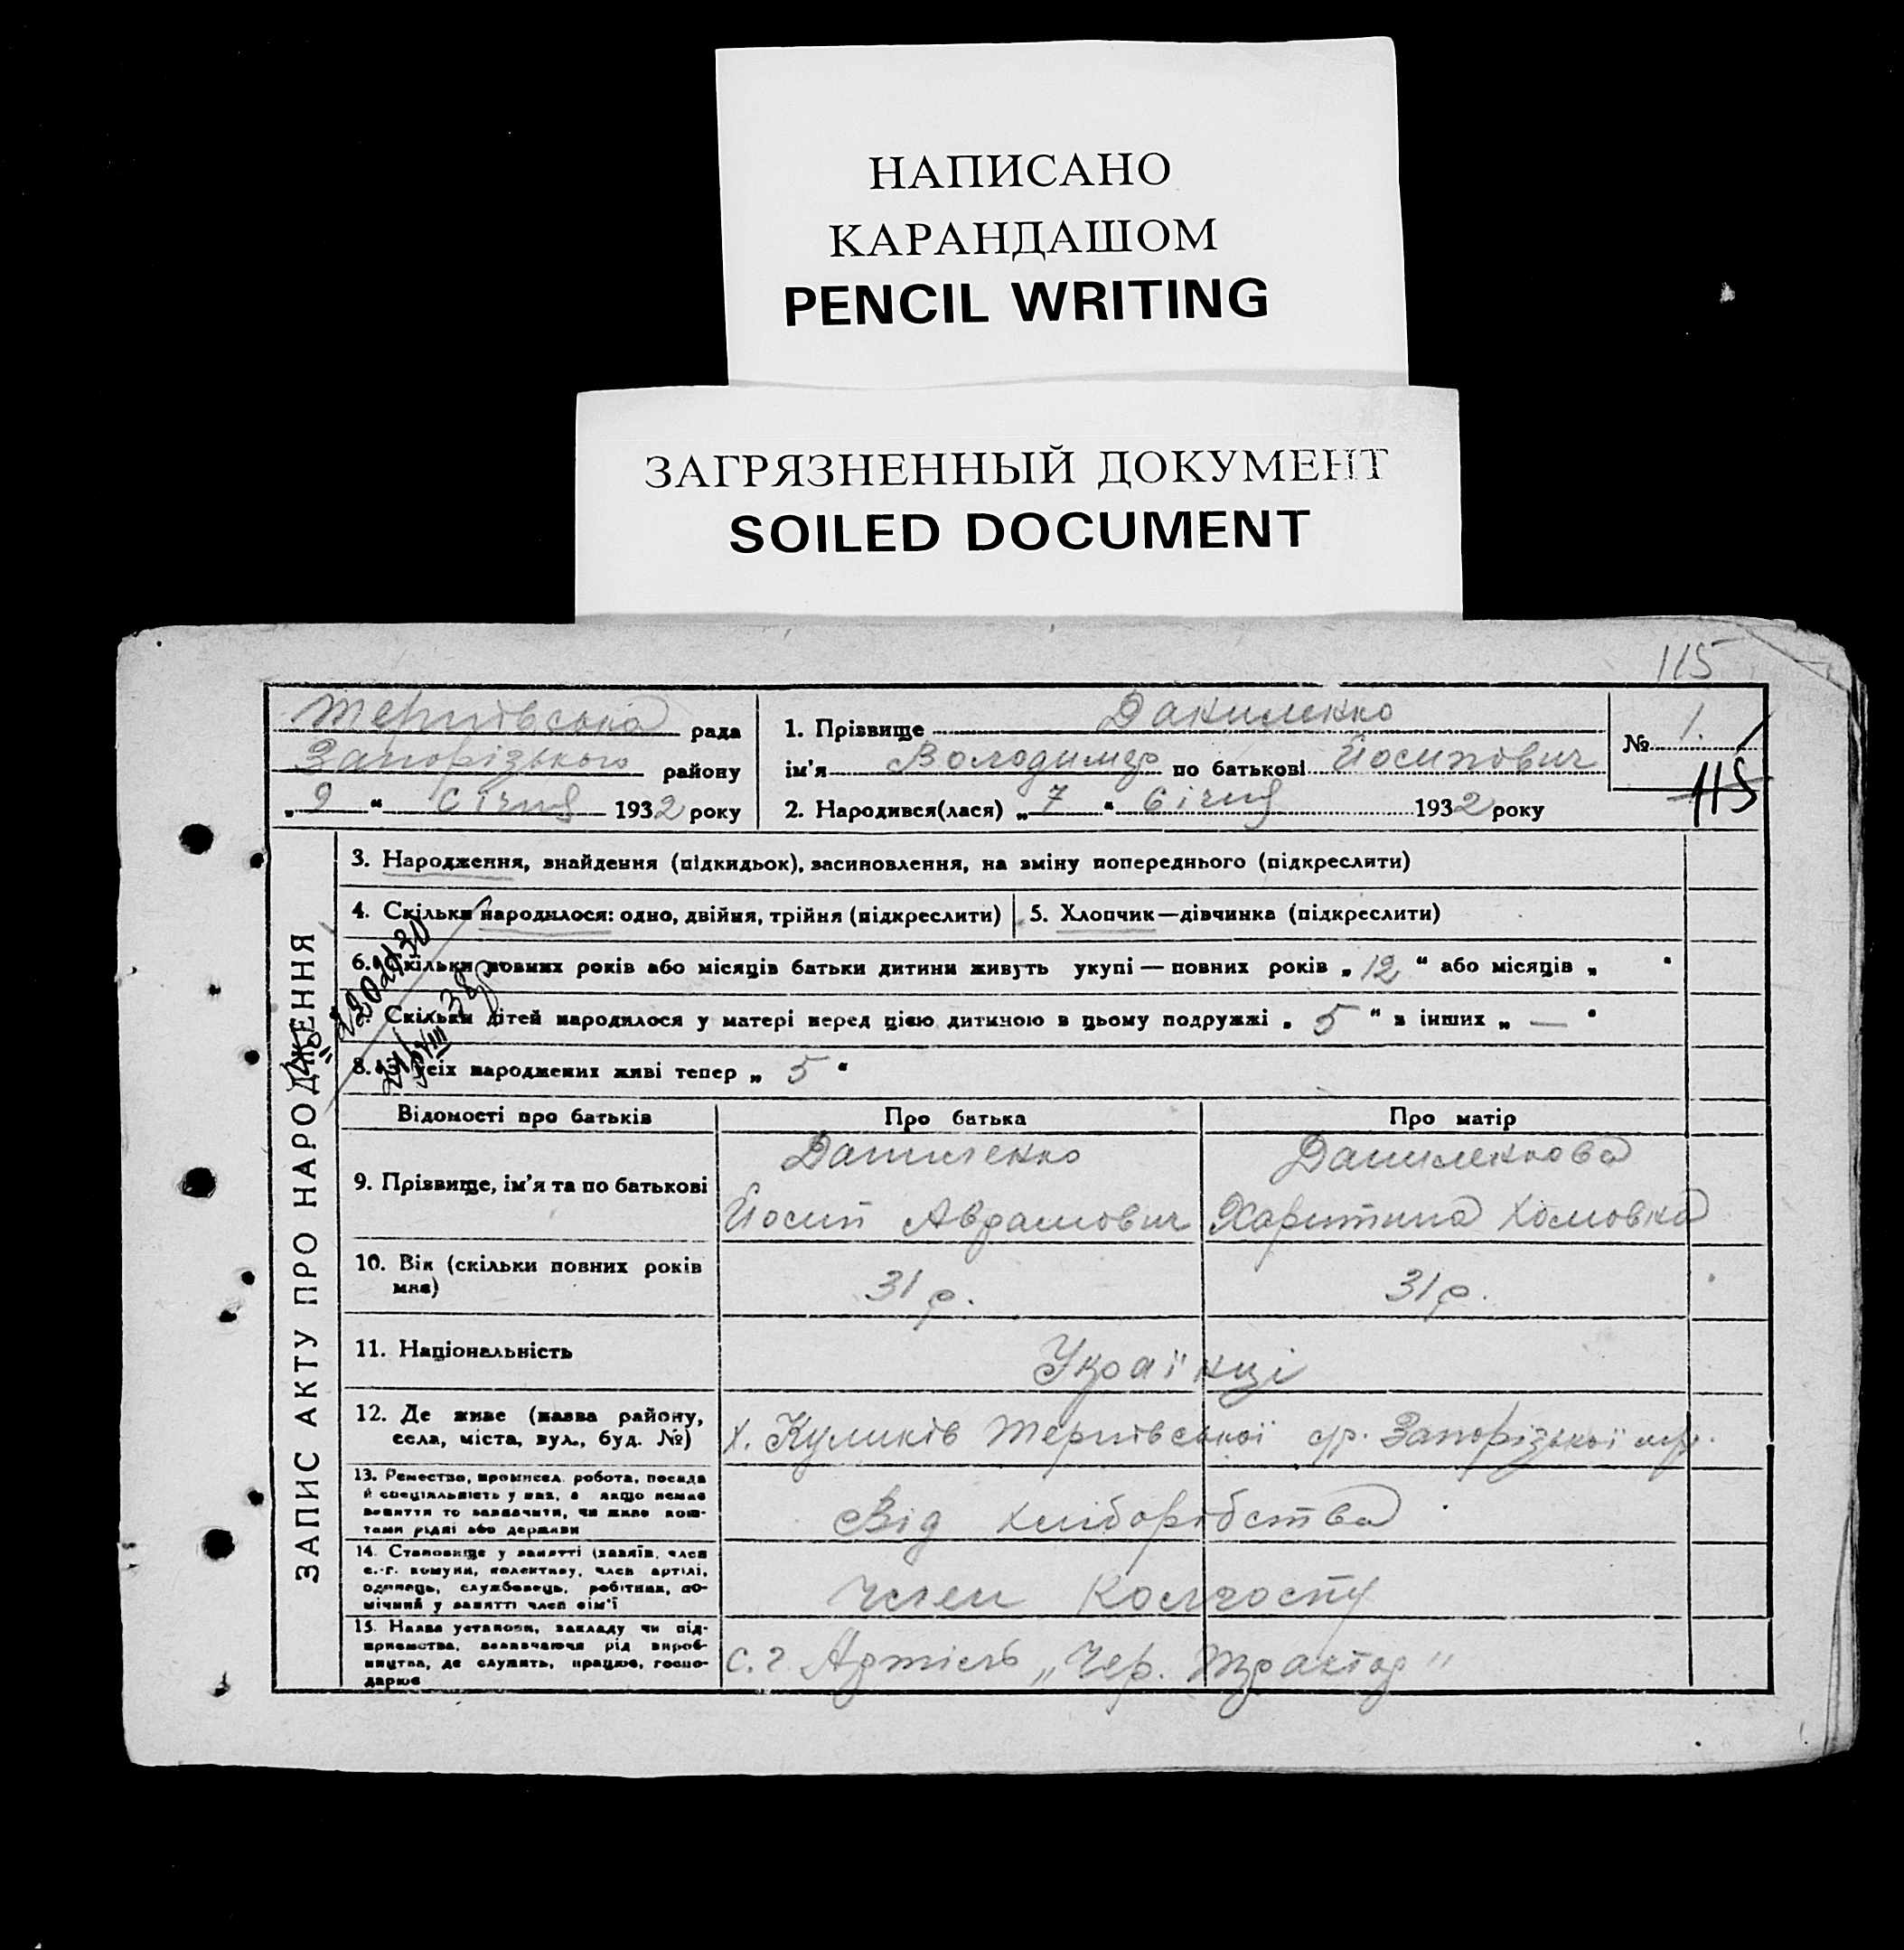 НАПИСАНО
КАРАНДАШОМ
PENCIL WRITING
ЗАГРЯЗНЕННЫЙ ДОКУМЕНТ
SOILED DOCUMENT
115
Тернівська рада
Запорізького району
„9“ Січня 1932 року
1. Прізвище Даниленко
ім'я Володимир по батькові Йосипович
2. Народився(лася) „7“ Січня 1932 року
№ 1.
115
ЗАПИС АКТУ ПРО НАРОДЖЕННЯ
3. Народження, знайдення (підкидьок), засиновлення, на зміну попереднього (підкреслити)
4. Скільки народилося: одно, двійня, трійня (підкреслити)
5. Хлопчик—дівчинка (підкреслити)
6. Скільки повних років або місяців батьки дитини живуть укупі — повних років „12“ або місяців „ “
7. Скільки дітей народилося у матері перед цією дитиною в цьому подружжі „5“ в інших „—“
8. Зі усіх народжених живі тепер „5“
Відомості про батьків Про батька Про матір
9. Прізвище, ім'я та по батькові
Даниленко
Йосип Аврамович
Даниленкова
Харитина Хомовна
10. Вік (скільки повних років
має)
31 р. 31 р.
11. Національність
Українці
12. Де живе (назва району,
села, міста, вул., буд. №)
х. Куликів Тернівської с/р. Запорізької м/р.
13. Ремество, промисел, робота, посада
й спеціальність у них, а якщо немає
заняття то зазначити, чи живе кош-
тами рідні або держави
Від хліборобства
14. Становище у занятті (хазяїн, член
с.-г. комуни, колективу, член артілі,
одинець, службовець, робітник, по-
мічний у занятті член сім'ї
член колгоспу
15. Назва установи, закладу чи під-
приємства, зазначаючи рід вироб-
ництва, де служить, працює, госпо-
дарює
С.г Артіль „Чер. Трактор"